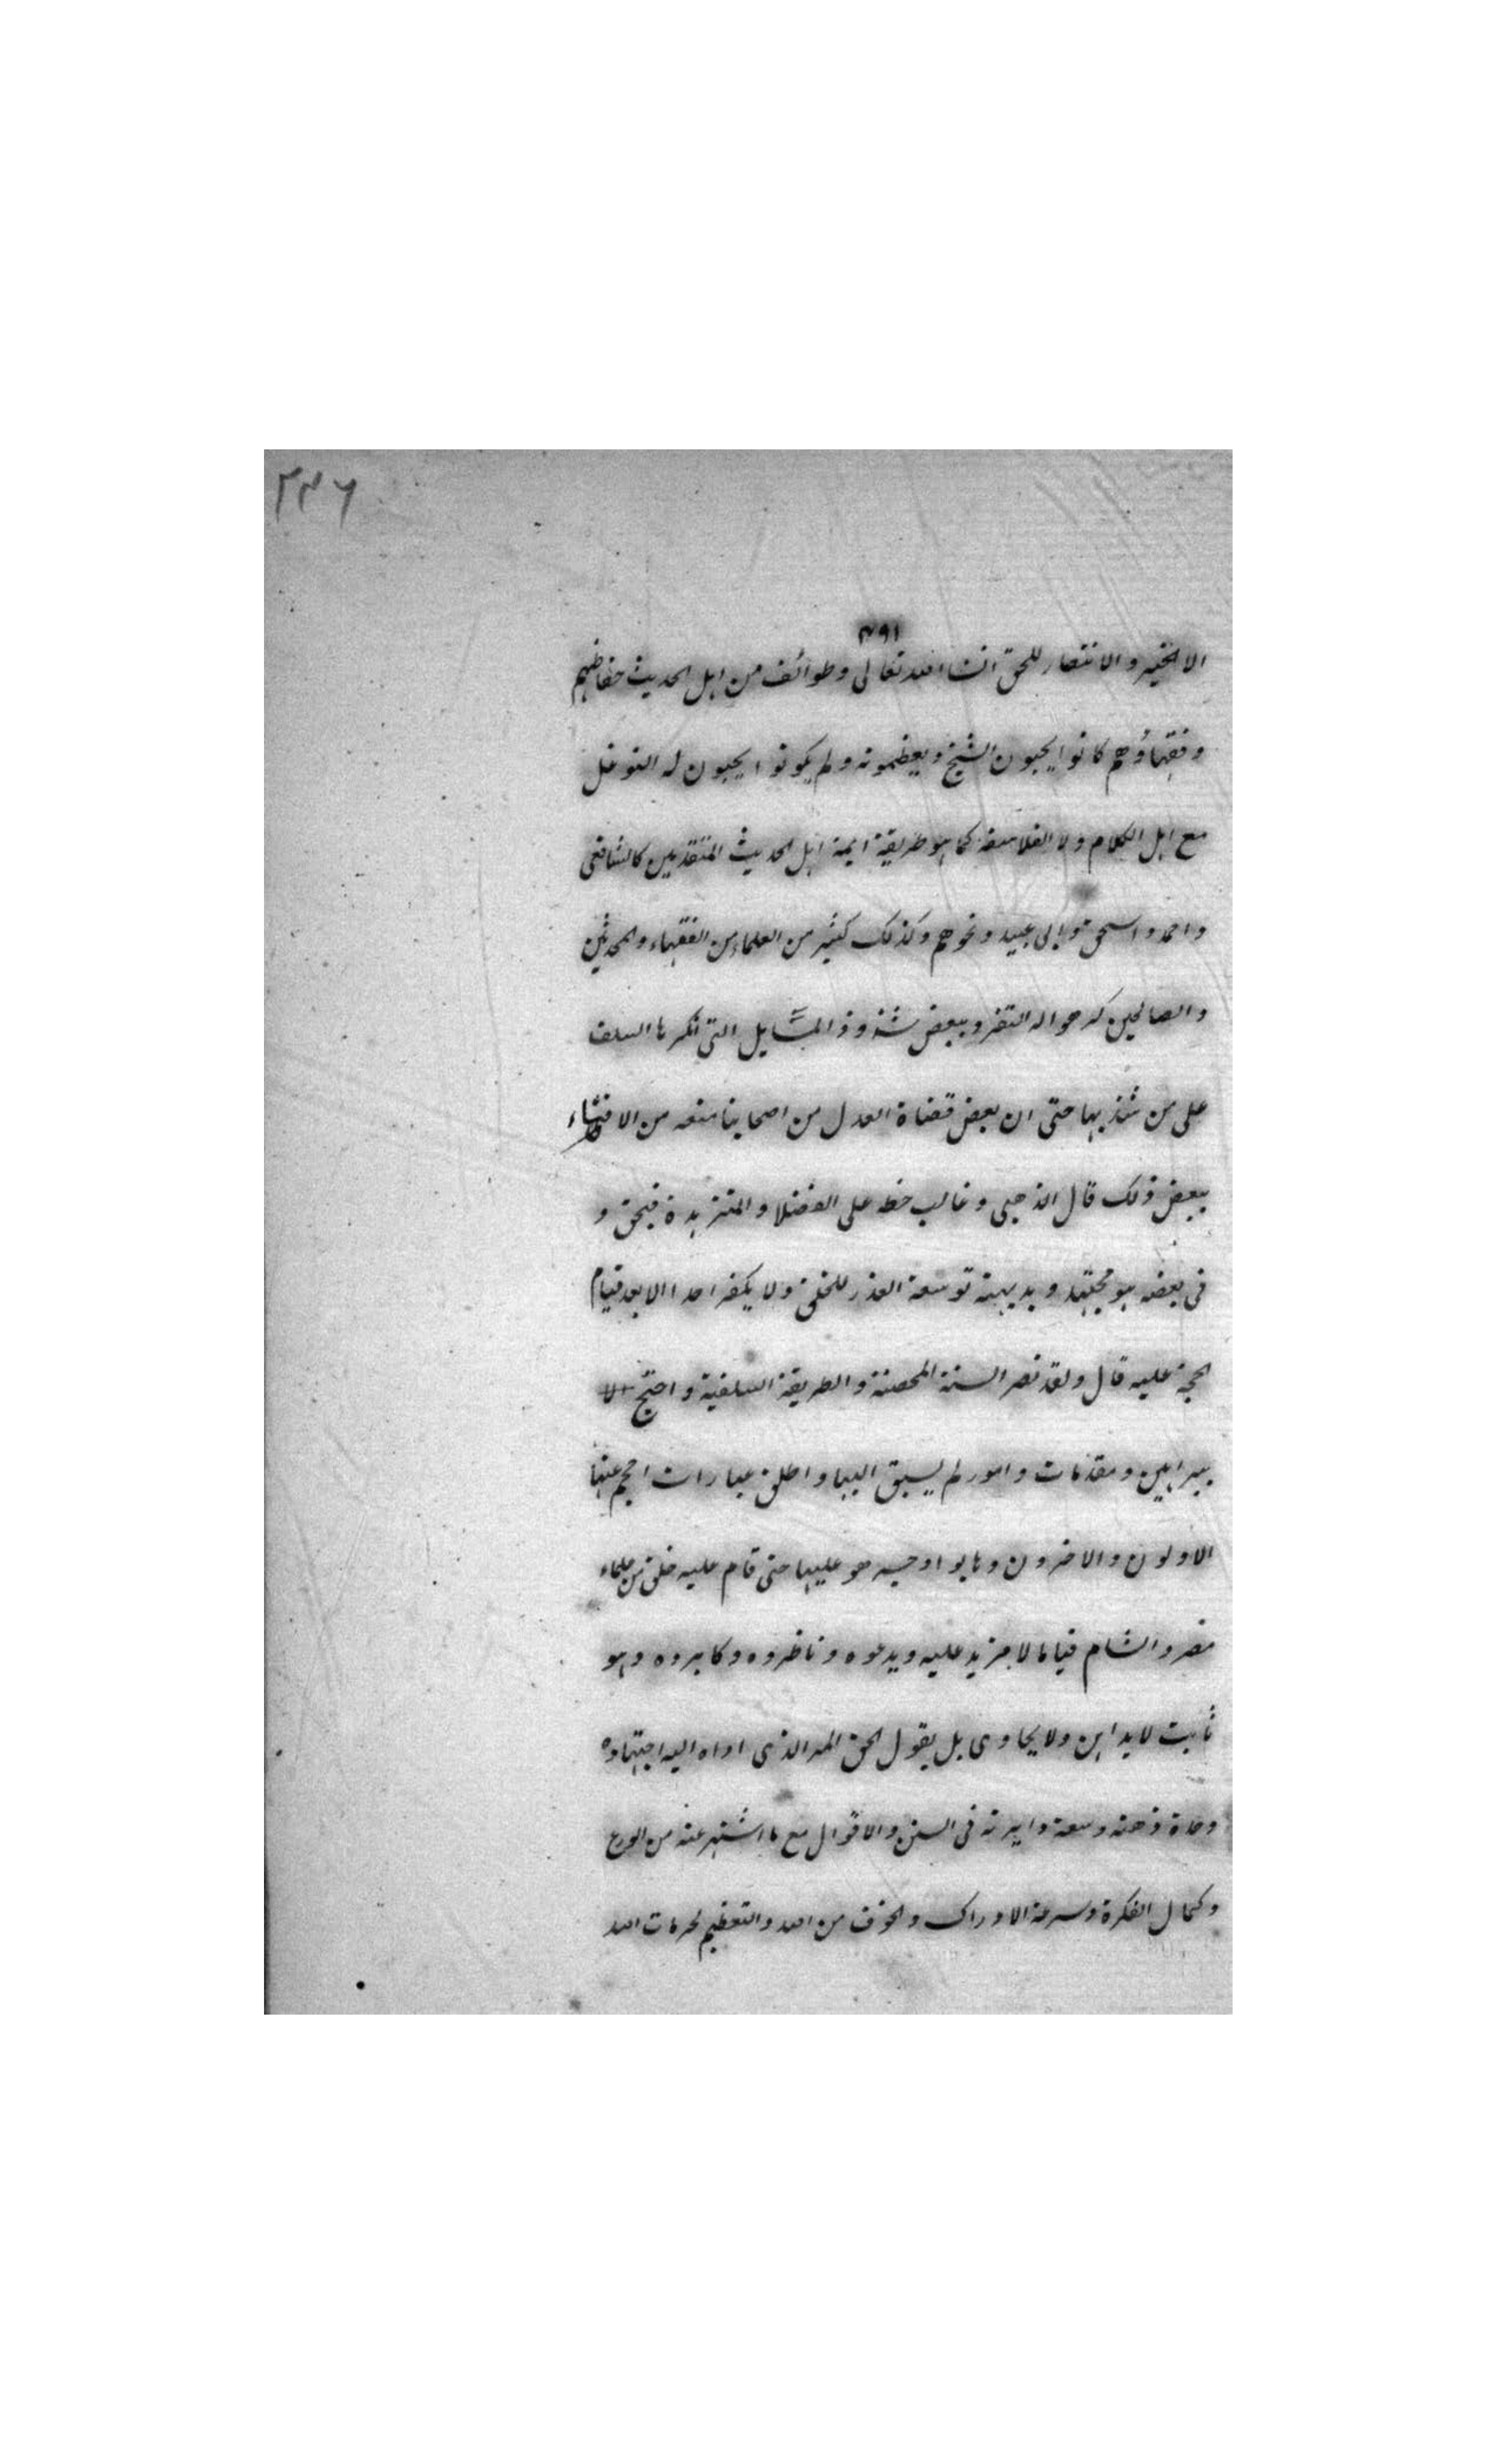 ٢٣٦
٣٩١
الا الخير والانتصار للحق انشا الله تعالى وطوائف من اهل الحديث حفاظهم
وفقهاؤهم كانوا يحبون الشيخ ويعظمونه ولم يكونوا يحبون له التوغل
مع اهل الكلام ولا الفلاسفة كما هو طريقة ايمة اهل الحديث المتقدمين كالشافعى
واحمد واسحق وابى عبيد ونحوهم وكذلك كثير من العلماء من الفقهاء والمحدثين
والصالحين كرهوا له التفرد ببعض شذوذ المسايل التى انكرها السلف
على من شذ بها حتى ان بعض قضاة العدل من اصحابنا منعه من الافتاء
ببعض ذلك قال الذهبى وغالب حطه على الفضلا والمتزهدة فبحق و
فى بعضه هو مجتهد و توسعة العذر للخلق ولا يكفر احدا الا بعد قيام
الحجة عليه قال ولقد نصر السنة المحضة والطريقة السلفية واحتج لها
ببراهين ومقدمات وامور لم يسبق اليها واطلق عبارات احجم عنها
الاولون والاخرون وهابوا وجسر هو عليها حتى قام عليه خلق من علماء
مصر والشام قياما لا مزيد عليه وبدعوه وناظروه وكابروه وهو
ثابت لا يداهن ولا يحابى بل يقول الحق المر الذى اداه اليه اجتهاده
وحدة ذهنه وسعة دايرته فى السنن والاقوال مع ما اشتهر عنه من الورع
وكمال الفكرة وسرعة الادراك والخوف من الله والتعظيم لحرمات الله